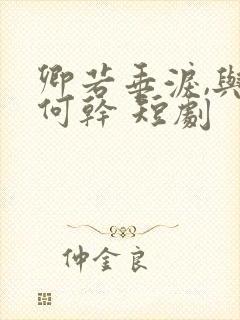 卿若垂淚,與
何幹 短劇
仲金良